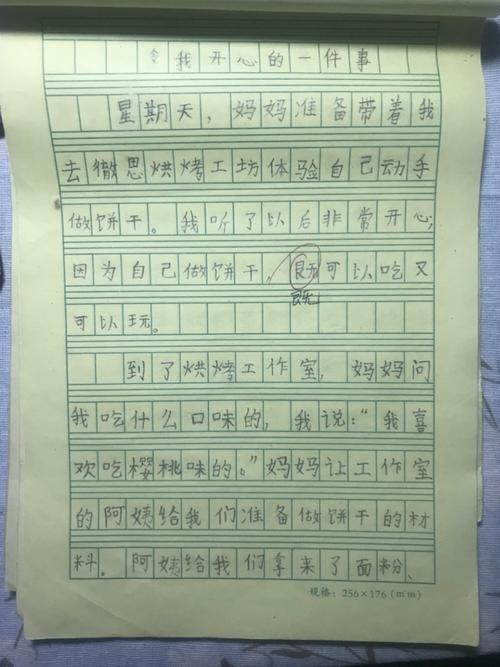 令我开心的一件事
星期天，妈妈准备带着我
去徹思烘烤工坊体验自己动手
做饼干。我听了以后非常开心，
因为自己做饼干，既可以吃又
既
可以玩。
到了烘烤工作室，妈妈问
我吃什么口味的，我说：“我喜
欢吃樱桃味的。”妈妈让工作室
的阿姨给我们准备做饼干的材
料。阿姨给我们拿来了面粉、
规格：256×176（mm）